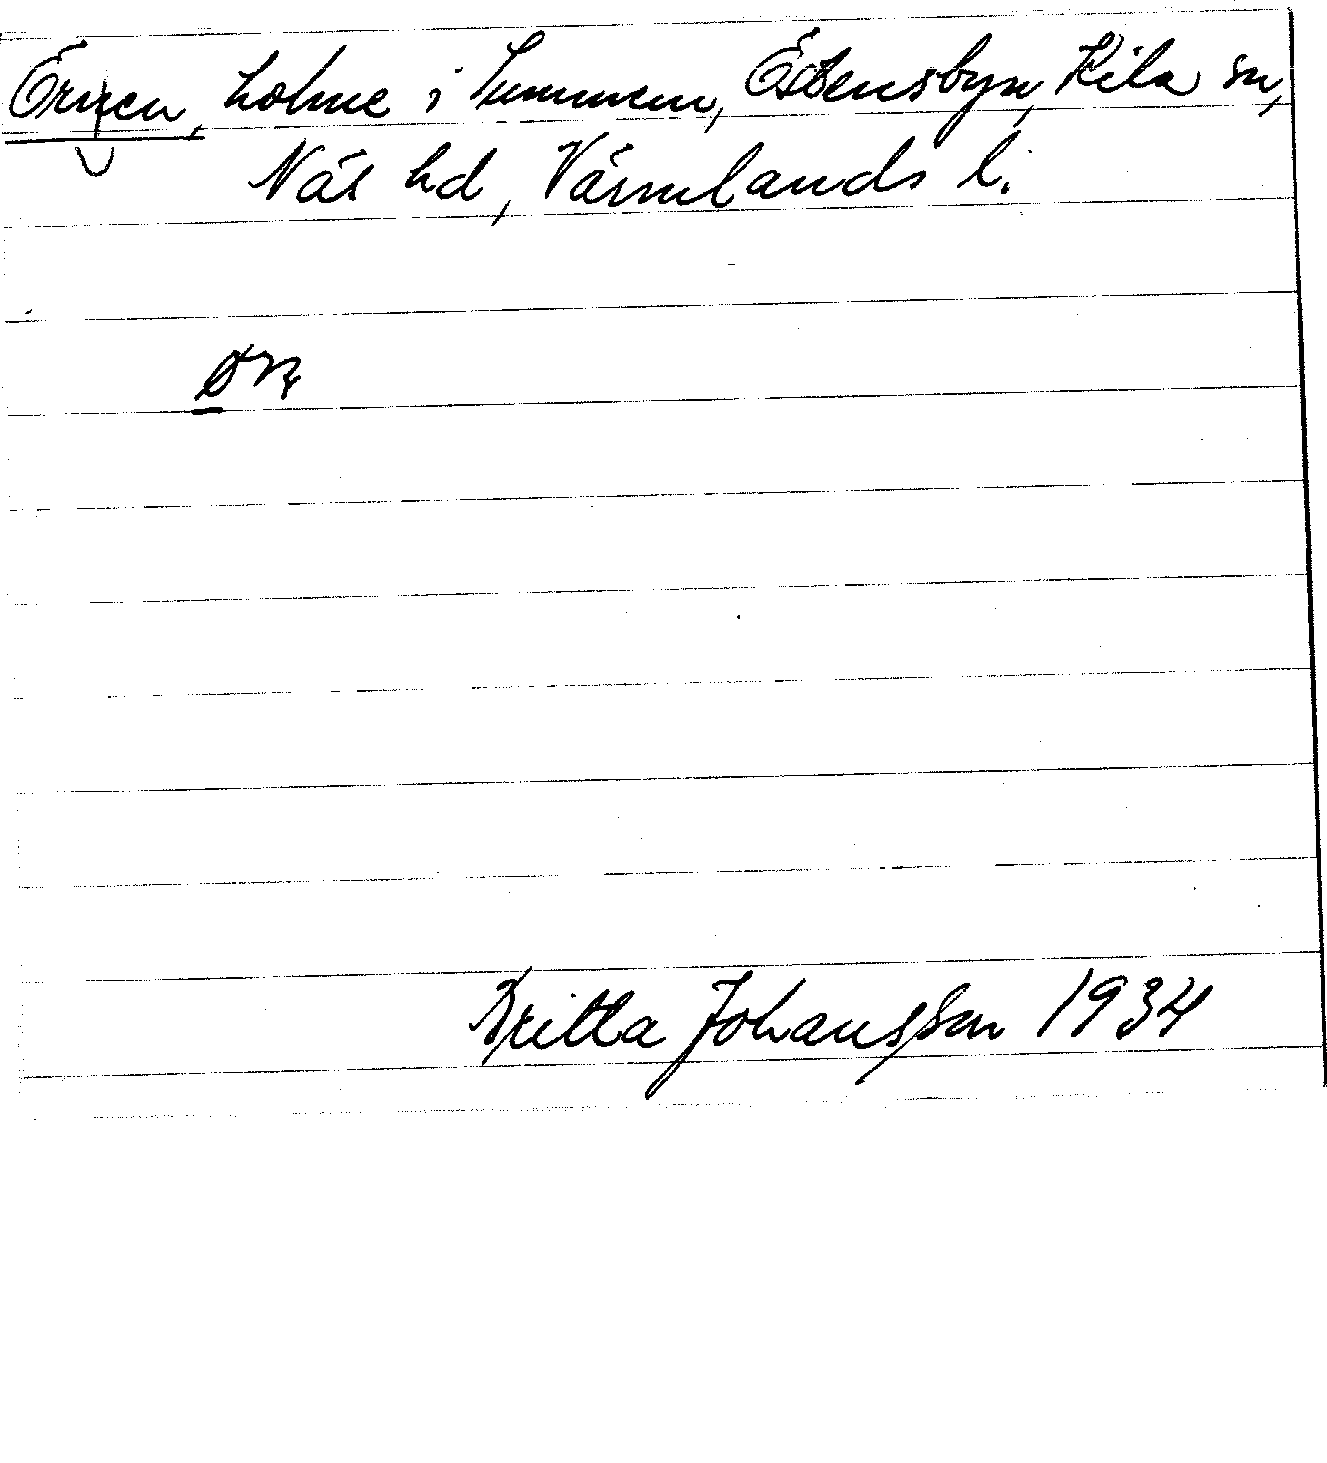 holme i Summeln, Östensbyn, Kila sn,
Näs hd, Värmlands l.
Britta Johansson 1934